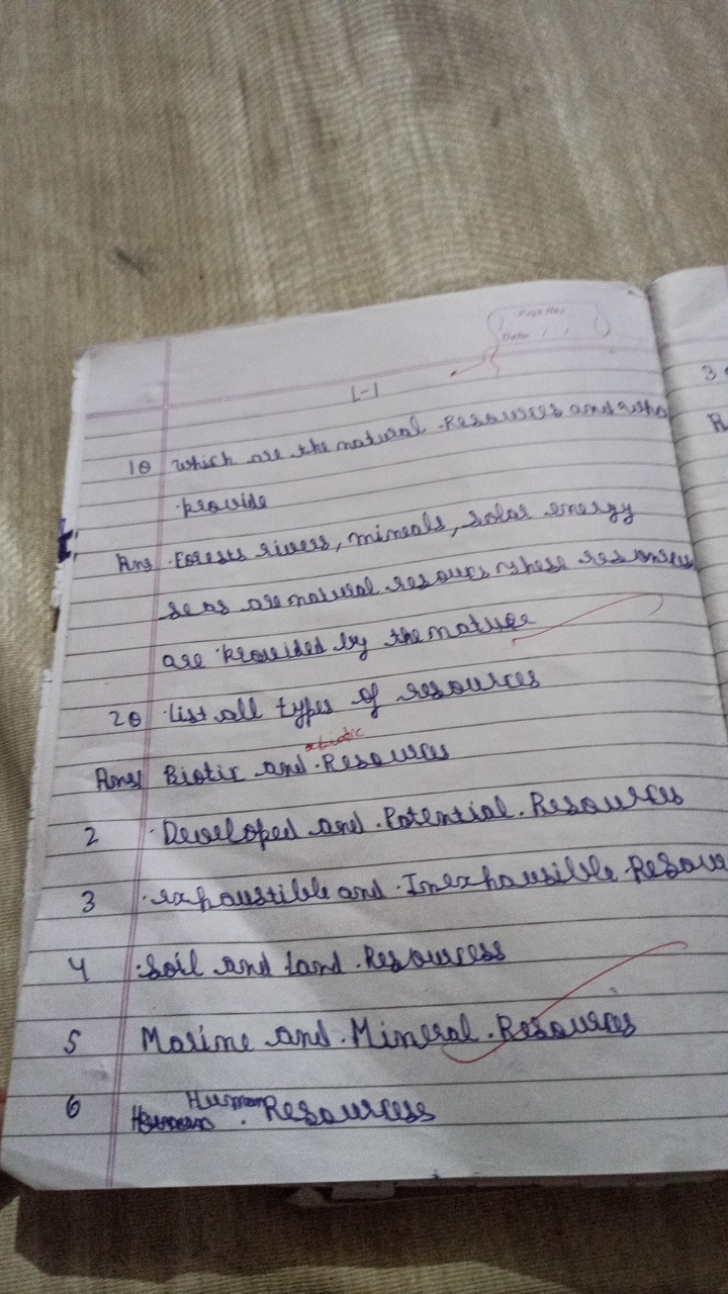 Page No:
Date: / /
L-1
3
1Q which are the natural Resources and who
provide
Ans Forests rivers, mineals, solar energy
seas are natural resources these resources
are provided by the nature
2Q list all types of resources
abiotic
Ans Biotic and Resources
2 Developed and Potential Resources
3 exhaustible and Inexhausible Resour
4 Soil and land Resourcess
5 Marine and Mineral Resources
6 Human Resourcess